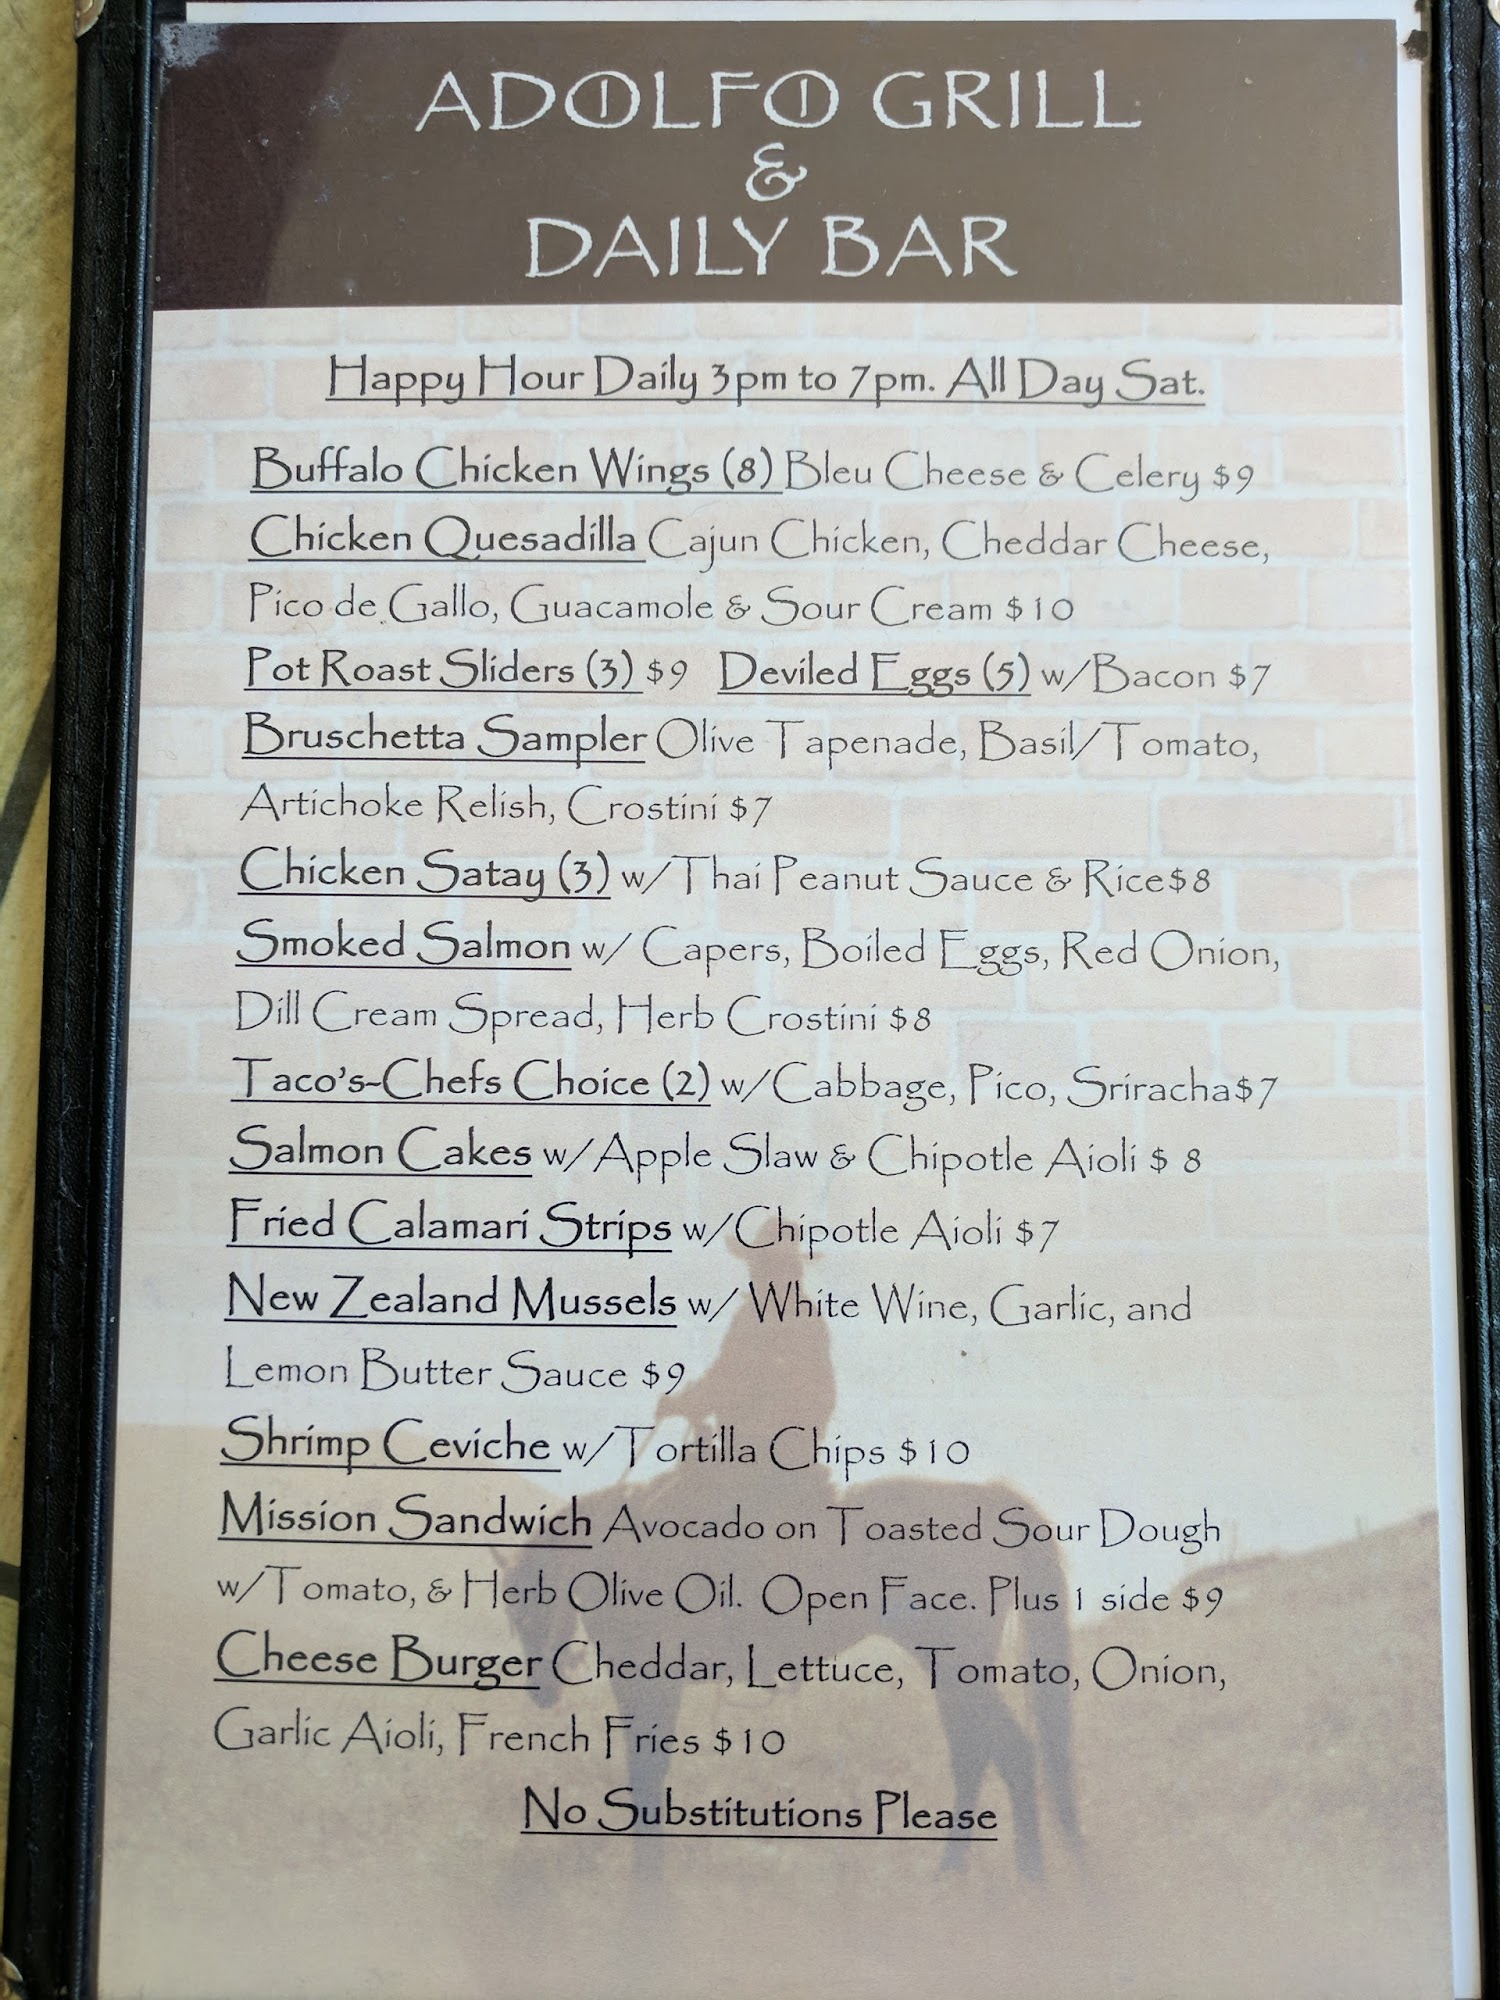 ADOLFO GRILL
&
DAILY BAR
Happy Hour Daily 3pm to 7pm. All Day Sat.
Buffalo Chicken Wings (8) Bleu Cheese & Celery $9
Chicken Quesadilla Cajun Chicken, Cheddar Cheese,
Pico de Gallo, Guacamole & Sour Cream $10
Pot Roast Sliders (3) $9 Deviled Eggs (5) w/Bacon $7
Bruschetta Sampler Olive Tapenade, Basil/Tomato,
Artichoke Relish, Crostini $7
Chicken Satay (3) w/Thai Peanut Sauce & Rice$8
Smoked Salmon w/ Capers, Boiled Eggs, Red Onion,
Dill Cream Spread, Herb Crostini $8
Taco's-Chefs Choice (2) w/Cabbage, Pico, Sriracha$7
Salmon Cakes w/Apple Slaw & Chipotle Aioli $ 8
Fried Calamari Strips w/Chipotle Aioli $7
New Zealand Mussels w/ White Wine, Garlic, and
Lemon Butter Sauce $9
Shrimp Ceviche w/Tortilla Chips $10
Mission Sandwich Avocado on Toasted Sour Dough
w/Tomato, & Herb Olive Oil. Open Face. Plus 1 side $9
Cheese Burger Cheddar, Lettuce, Tomato, Onion,
Garlic Aioli, French Fries $10
No Substitutions Please